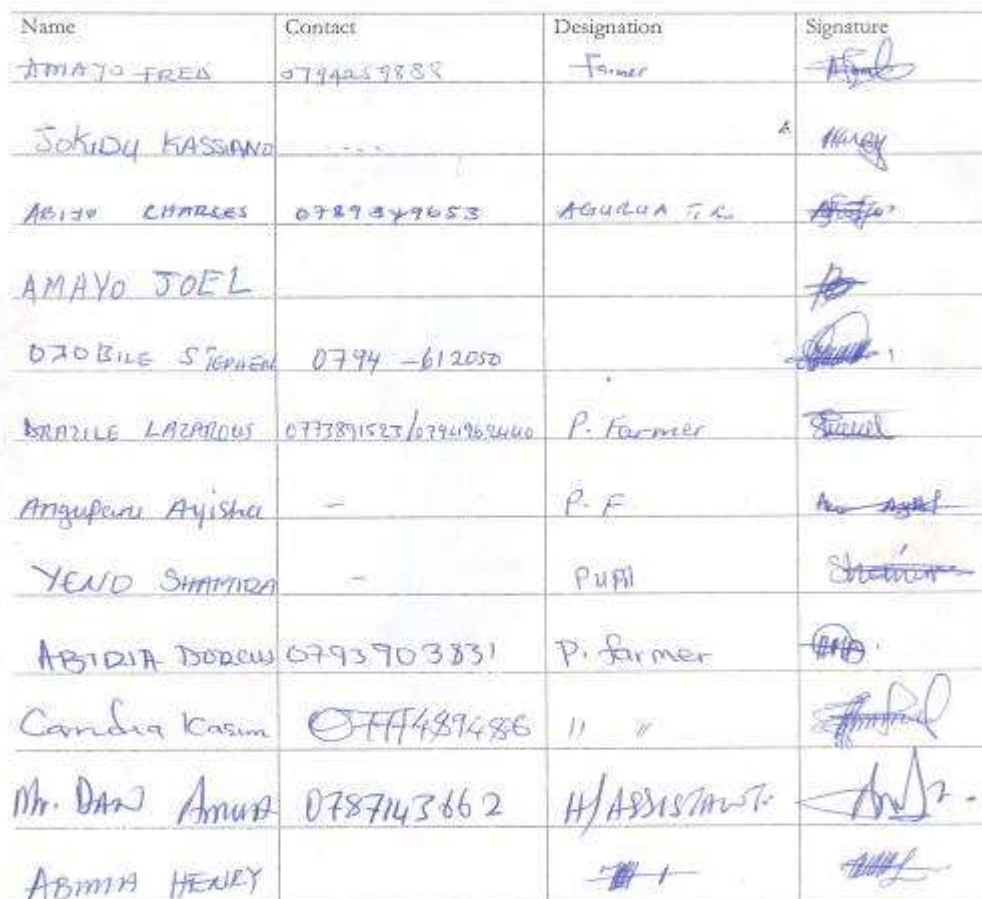 Name Contact Designation Signature
AMAYO FRED 0794259888 Farmer
JOKIDU KASSIANO ....
ABIYO CHARLES 0789349653 AGURUA
AMAYO JOEL
OZOBILE STEPHEN 0794 -612050
DRAZILE LAZAROUS 0773891523/0794962440 P. Farmer
Anguparu Ayisha - P.F
YENO SHAMIRA - PUPIL
ABIRIA DORCUS 0793903831 P. farmer
Candia Kasim 0777489486 11 11
Mr. DAN Amua 0787143662 H/ASSISTANT.
ABIMA HENRY